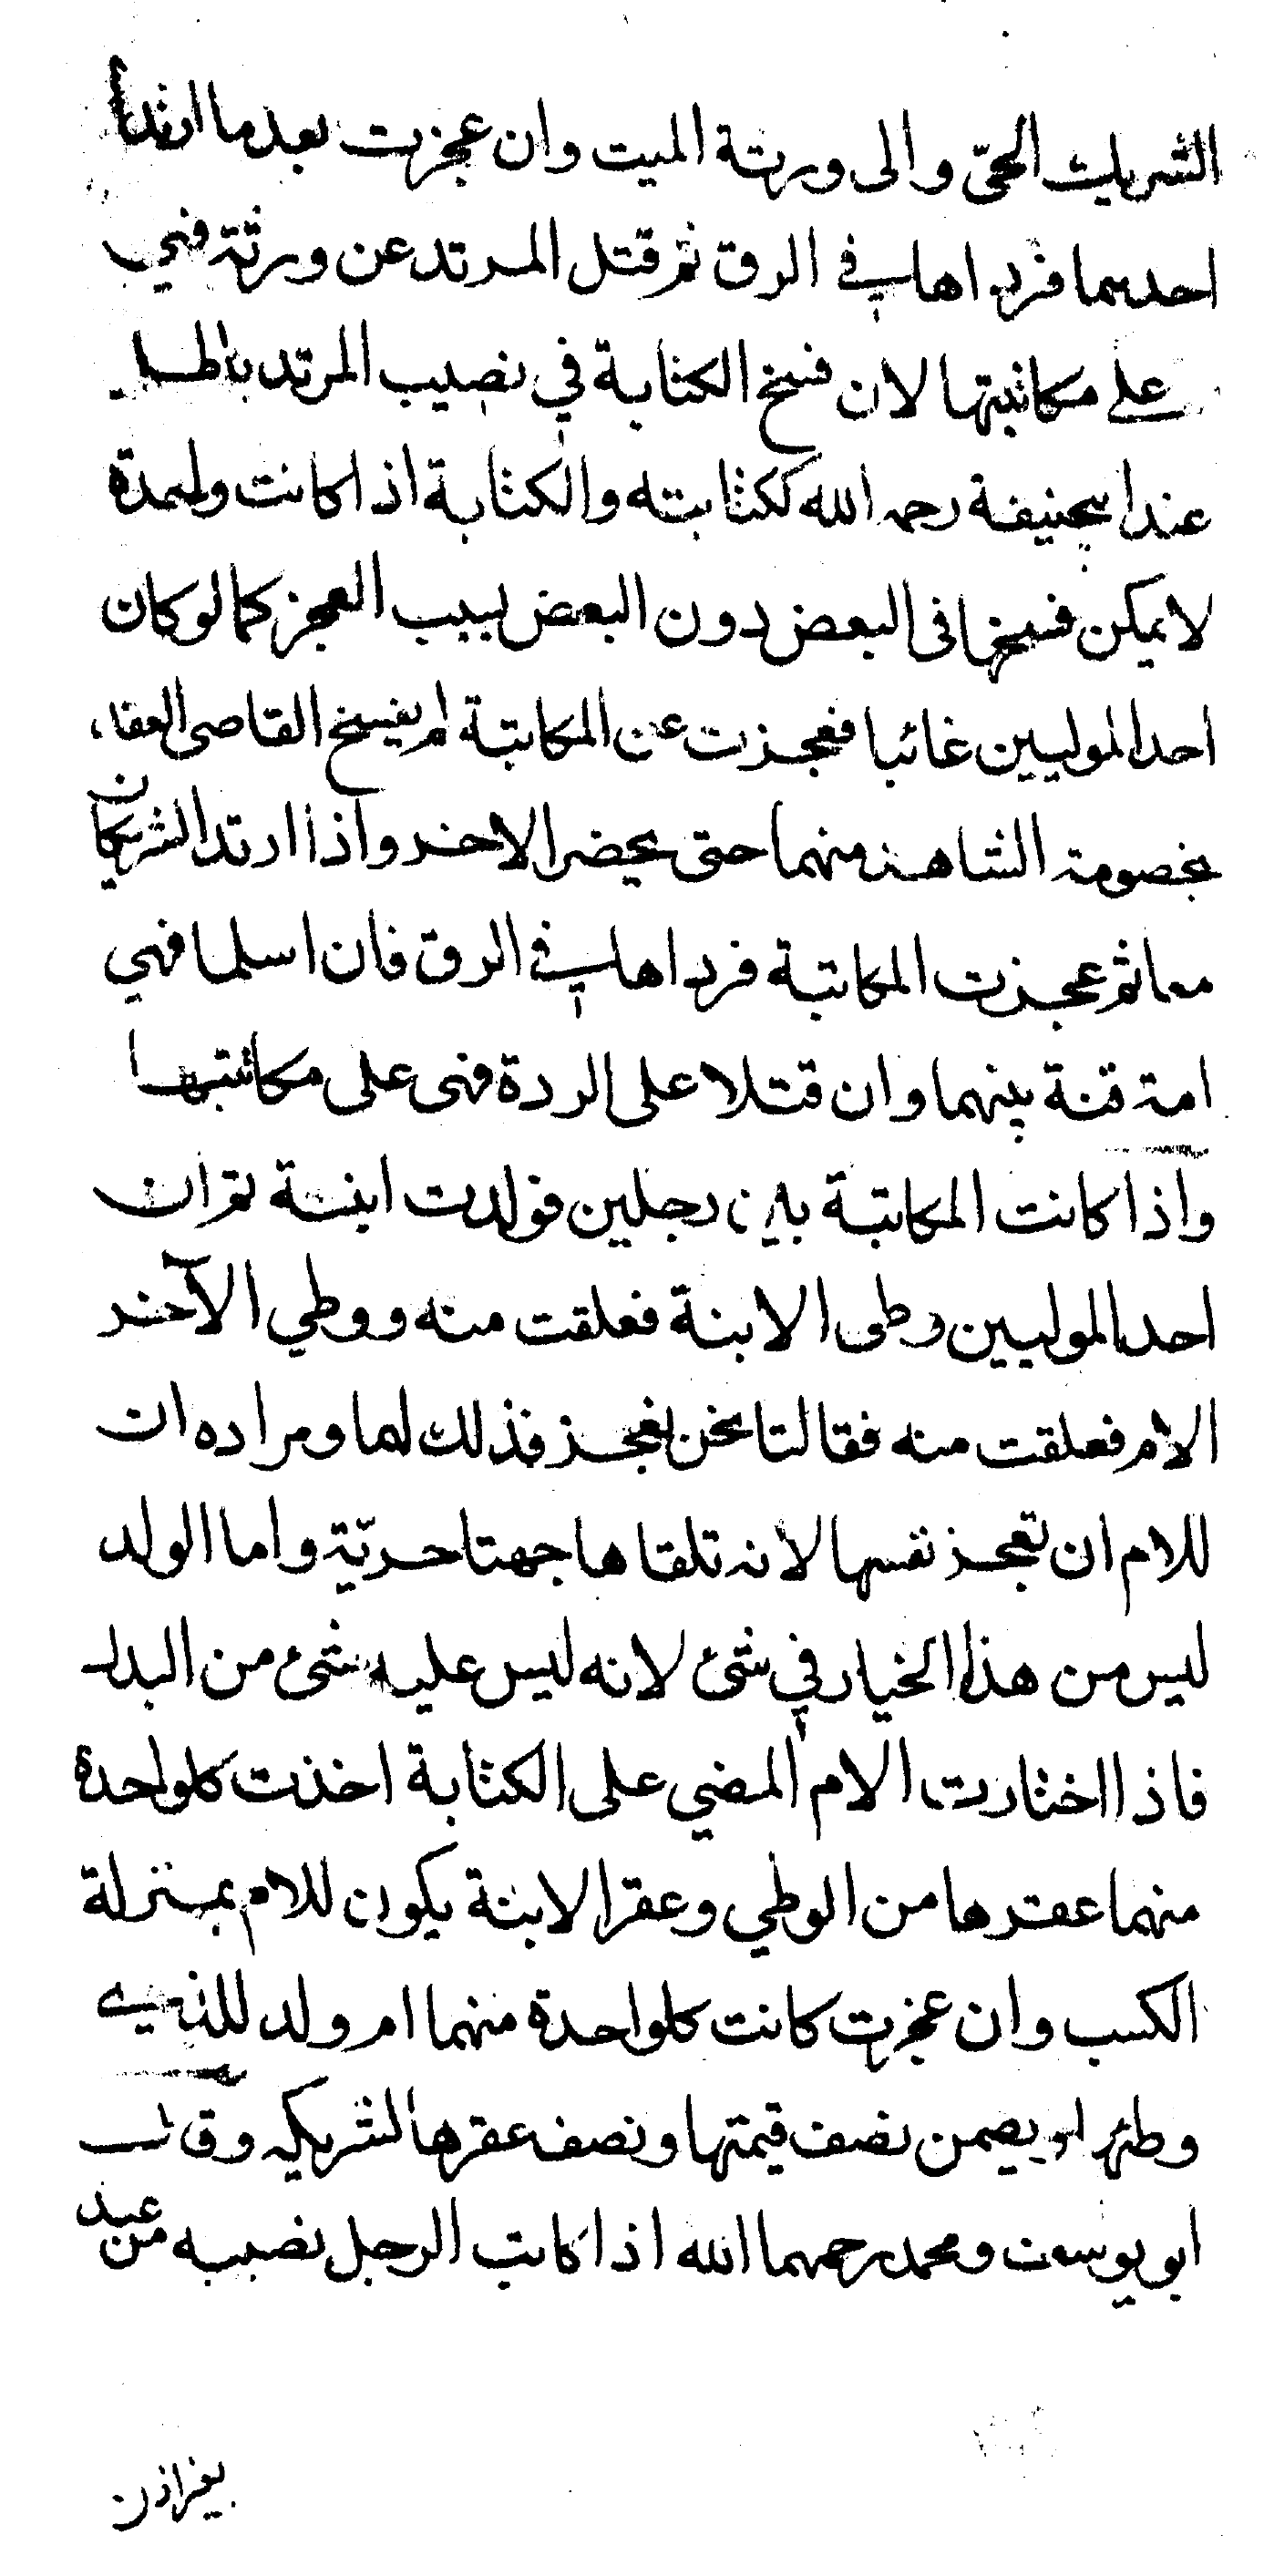 الشريك الحيّ والى ورثة الميت وان عجزت بعد ما ارتد
احدهما فرداها في الرق ثم قتل المرتد عن ورثة فهي
على مكاتبتها لان فسخ الكتابة في نصيب المرتد باطل
عند ابيحنيفة رحمه الله ككتابته والكتابة اذا كانت واحدة
لا يمكن فسخها فى البعض دون البعض بسبب العجز كما لو كان
احد الموليين غائبا فعجزت عن المكاتبة لم يفسخ القاضى العقد
بخصومة الشاهد منهما حتى يحضر الاخر واذا ارتد الشريكان
معا ثم عجزت المكاتبة فرداها في الرق فان اسلما فهي
امة قنة بينهما وان قتلا على الردة فهى على مكاتبتها
واذا كانت المكاتبة بين رجلين فولدت ابنة ثم ان
احد الموليين وطى الابنة فعلقت منه ووطي الآخر
الام فعلقت منه فقالتا نحن نعجز فذلك لهما ومراده ان
للام ان تعجز نفسها لانه تلقاها جهتا حريّة واما الولد
ليس من هذا الخيار في شئ لانه ليس عليه شئ من البدل
فاذا اختارت الام المضي على الكتابة اخذت كلواحدة
منهما عقرها من الوطي وعقر الابنة يكون للام بمنزلة
الكسب وان عجزت كانت كلواحدة منهما ام ولد للذي
وطئها ويضمن نصف قيمتها ونصف عقرها لشريكه وقال
ابو يوسف ومحمد رحمهما الله اذا كاتب الرجل نصيبه من عبد
بغير اذن